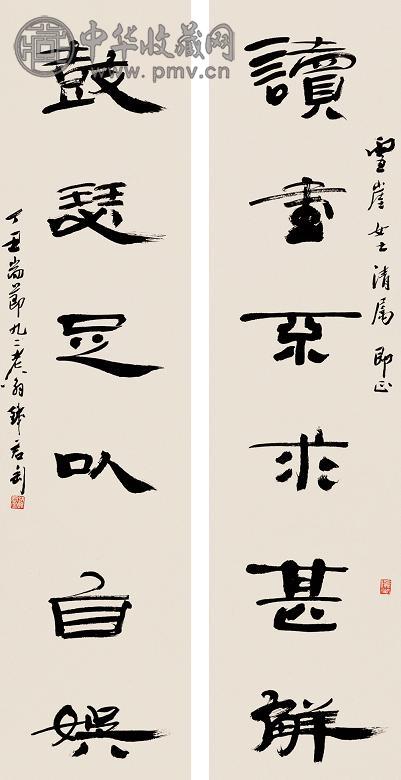 中华收藏网
www.pmv.cn
雪崖女士清属 即正
讀書不求甚解
鼓瑟足以自娛
丁丑耑節九二老翁錢君匋